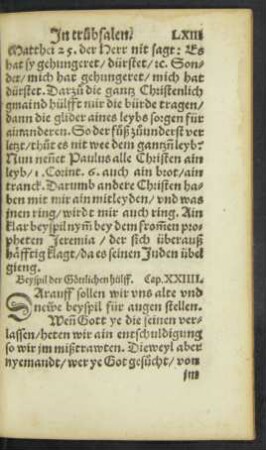 In trübsalen. LXIII
Matthei 25. der Herr nit sagt: Es
hat sy gehungeret / dürstet / ꝛc. Son-
der / mich hat gehungeret / mich hat
dürstet. Darzů die gantz Christenlich
gmaind hülfft mir die bürde tragen /
dann die glider aines leybs sorgen für
ainanderen. So der fůß zůunderst ver
letzt / thůt es nit wee dem gantzñ leyb?
Nun neñet Paulus alle Christen ain
leyb / 1. Corint. 6. auch ain brot / ain
tranck. Darumb andere Christen ha-
ben mit mir ain mitleyden / vnd was
jnen ring / wirdt mir auch ring. Ain
klar beyspil nym̃ bey dem from̃en pro-
pheten Jeremia / der sich überauß
häfftig klagt / da es seinen Juden übel
gieng.
Beyspil der Göttlichen hülff. Cap. XXIIII.
Darauff sollen wir vns alte vnd
newe beyspil für augen stellen.
Weñ Gott ye die seinen ver-
lassen / heten wir ain entschuldigung
so wir jm mißtrawten. Dieweyl aber
nyemandt / wer ye Got gesůcht / von
jm